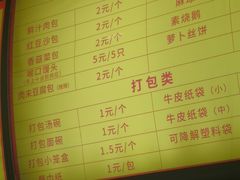 鲜汁肉包 2元/个
红豆沙包 2元/个 素烧鹅
香菇菜包 2元/个 萝卜丝饼
5元/5只
肉末豆腐包 2元/个
打包类
打包汤碗 1元/个 牛皮纸袋（小）
打包面碗 1元/个 牛皮纸袋（大）
打包小笼盒 1.5元/个 可降解塑料袋
1元/包